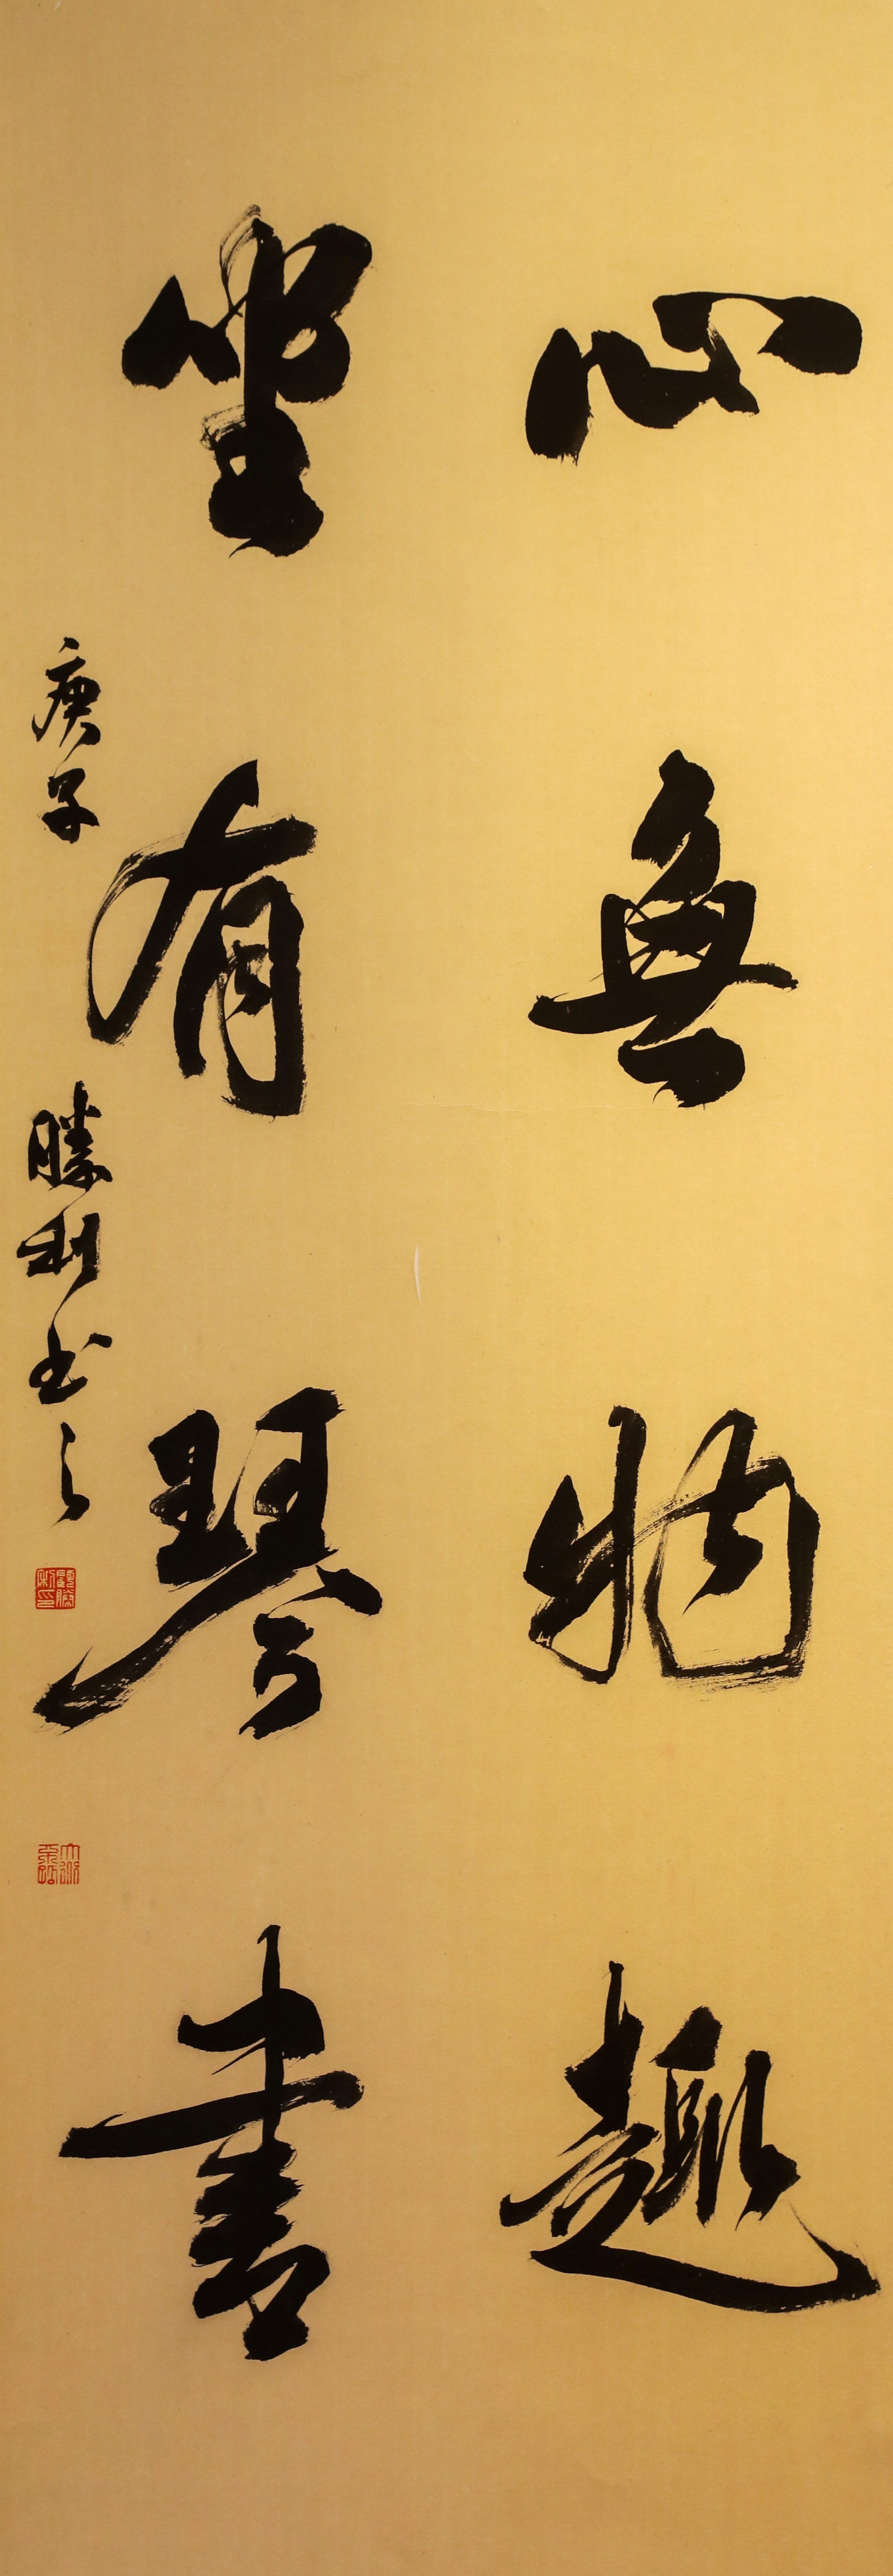 心無物趣
坐有琴書
庚子 勝利书之